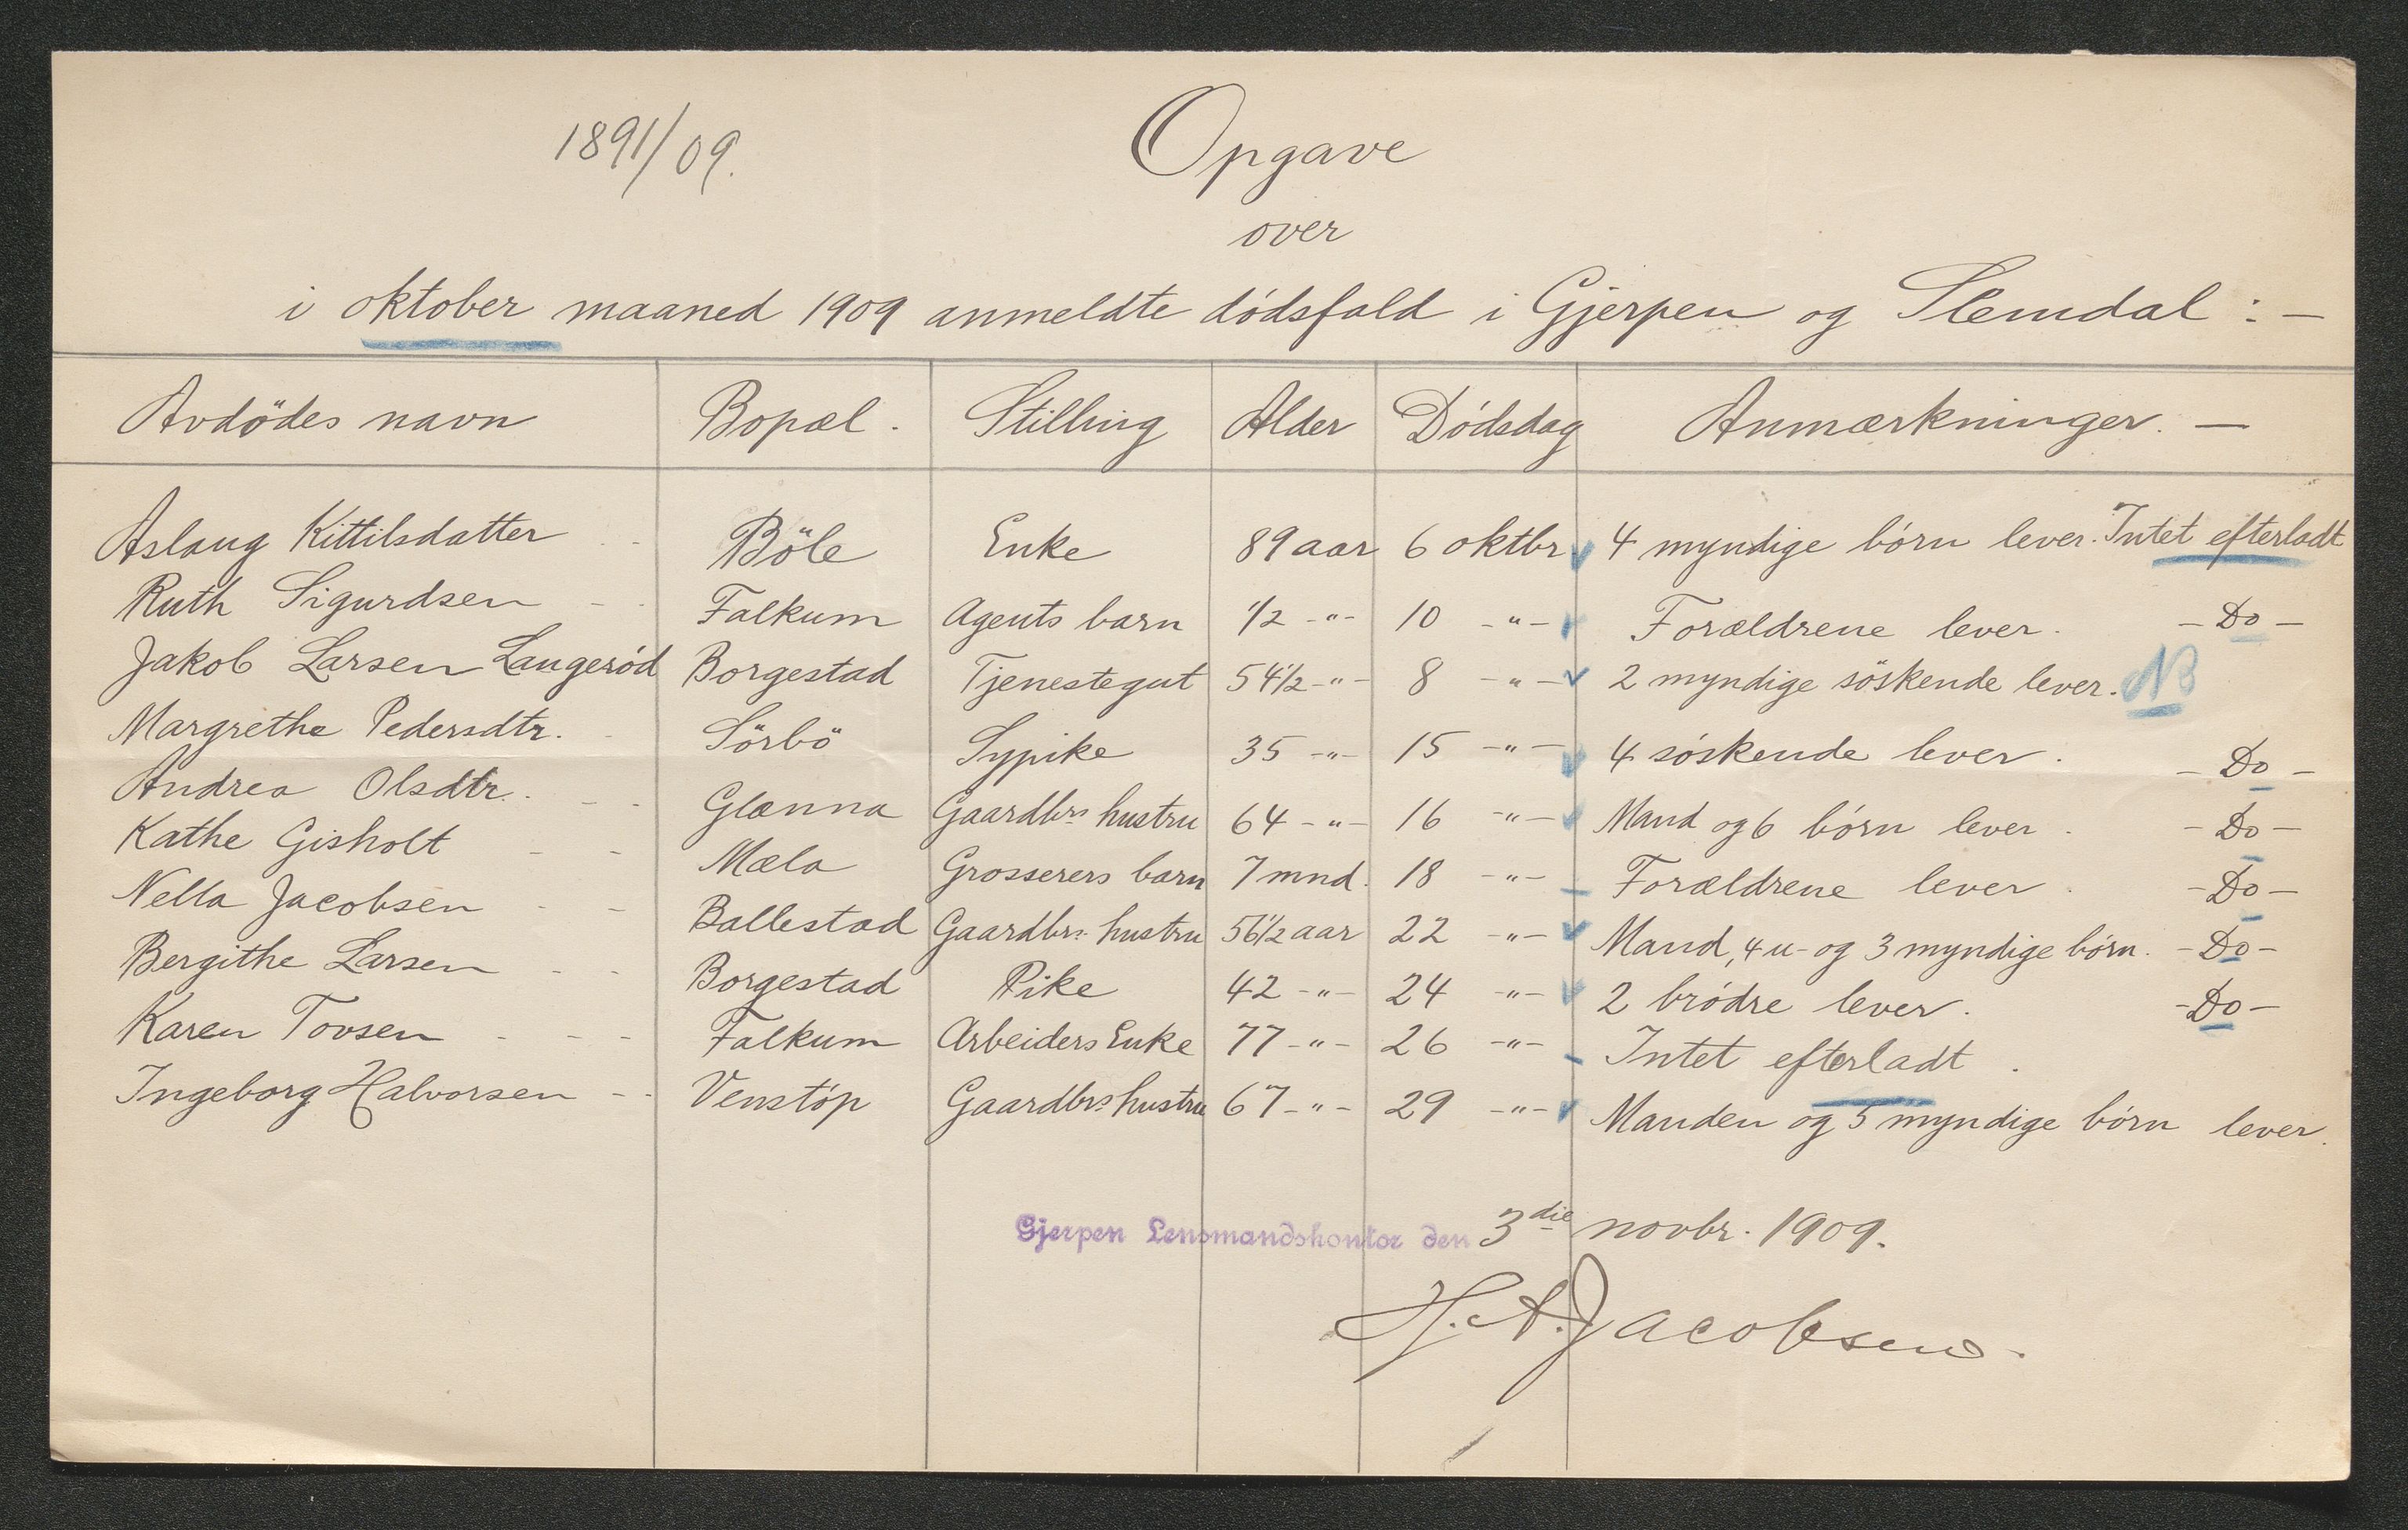 1891/09.
Opgave
over
i oktober maaned 1909 anmeldte dödsfald i Gjerpen og Slemdal : —
Avdödes navn | Bopæl. | Stilling | Alder | Dödsdag | Anmærkninger. —
Aslaug Kittilsdatter - - | Böle | Enke | 89 aar | 6 oktbr | 4 myndige börn lever. Intet efterladt
Ruth Sigurdsen - - | Falkum | Agents barn | 1/2 -"- | 10 -"- | Forældrene lever. - Do -
Jakob Larsen Langeröd | Borgestad | Tjenestegut | 54 1/2 -"- | 8 -"- | 2 myndige söskende lever. NB
Margrethe Pedersdtr. - | Sörbö | Sypike | 35 -"- | 15 -"- | 4 söskende lever. - Do -
Andrea Olsdtr. - - | Glænna | Gaardbrs hustru | 64 -"- | 16 -"- | Mand og 6 börn lever. - Do -
Kathe Gisholt - - | Mæla | Grosserers barn | 7 mnd. | 18 -"- | Forældrene lever. - Do -
Nella Jacobsen - - | Ballestad | Gaardbrs hustru | 56 1/2 aar | 22 -"- | Mand, 4 u- og 3 myndige börn. - Do -
Bergithe Larsen - - | Borgestad | Pike | 42 -"- | 24 -"- | 2 brödre lever. - Do -
Karen Tovsen - - - | Falkum | Arbeiders Enke | 77 -"- | 26 -"- | Intet efterladt.
Ingeborg Halvorsen - - | Venstöp | Gaardbrs hustru | 67 -"- | 29 -"- | Manden og 5 myndige börn lever.
Gjerpen Lensmandskontor den 3die novbr. 1909.
H. A. Jacobsen.